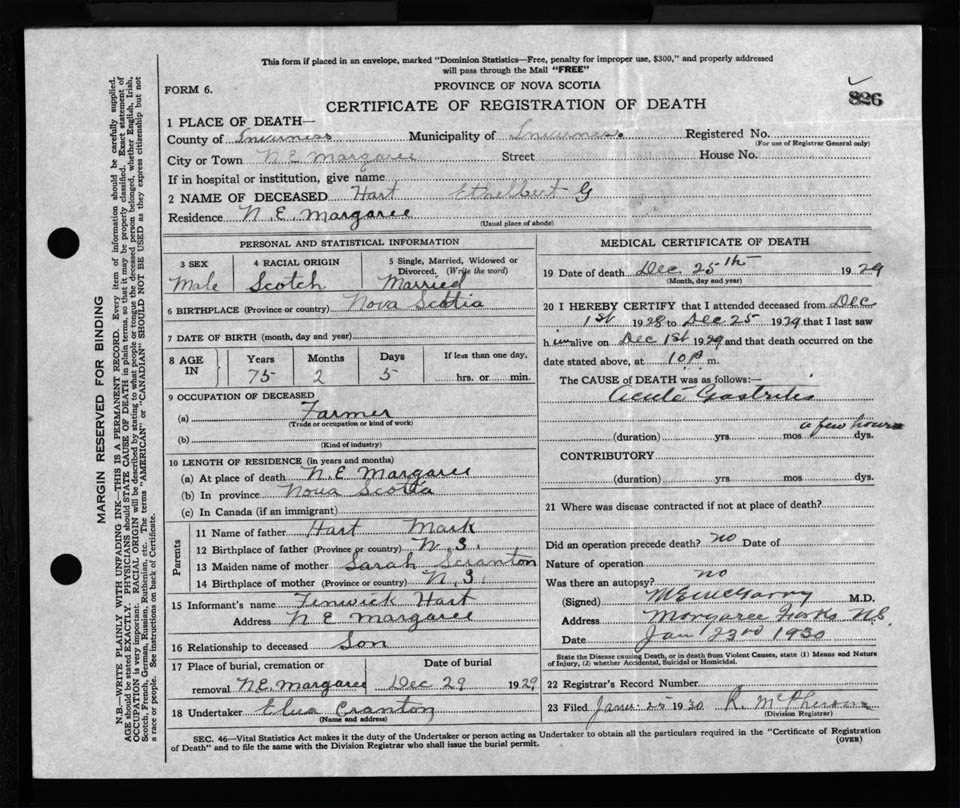 This form if placed in an envelope, marked "Dominion Statistics—Free, penalty for improper use, $300," and properly addressed
will pass through the Mail "FREE"
FORM 6.
PROVINCE OF NOVA SCOTIA
826
CERTIFICATE OF REGISTRATION OF DEATH
1 PLACE OF DEATH—
County of Inverness Municipality of Inverness Registered No.
(For use of Registrar General only)
City or Town N E Margaree Street House No.
If in hospital or institution, give name
2 NAME OF DECEASED Hart Ethelbert G
Residence N. E. Margaree
(Usual place of abode)
PERSONAL AND STATISTICAL INFORMATION
3 SEX 4 RACIAL ORIGIN 5 Single, Married, Widowed or
Divorced. (Write the word)
Male Scotch Married
6 BIRTHPLACE (Province or country) Nova Scotia
7 DATE OF BIRTH (month, day and year)
8 AGE IN Years Months Days If less than one day,
75 2 5 hrs. or min.
9 OCCUPATION OF DECEASED
(a) Farmer
(Trade or occupation or kind of work)
(b)
(Kind of industry)
10 LENGTH OF RESIDENCE (in years and months)
(a) At place of death N. E Margaree
(b) In province Nova Scotia
(c) In Canada (if an immigrant)
Parents
11 Name of father Hart Mark
12 Birthplace of father (Province or country) N. S.
13 Maiden name of mother Sarah Scranton
14 Birthplace of mother (Province or country) N. S.
15 Informant's name Fenwick Hart
Address N E Margaree
16 Relationship to deceased Son
17 Place of burial, cremation or Date of burial
removal N.E. Margaree Dec 29 1929
18 Undertaker Cranton
(Name and address)
MEDICAL CERTIFICATE OF DEATH
19 Date of death Dec 25th 1929
(Month, day and year)
20 I HEREBY CERTIFY that I attended deceased from Dec
1st 1928 to Dec 25 1929 that I last saw
h im alive on Dec 1st 1929 and that death occurred on the
date stated above, at 10 p m.
The CAUSE OF DEATH was as follows:—
Acute Gastritis
a few hours
(duration) yrs mos dys.
CONTRIBUTORY
(duration) yrs. mos. dys.
21 Where was disease contracted if not at place of death?
Did an operation precede death? no Date of
Nature of operation
Was there an autopsy? no
(Signed) McGarry M.D.
Address Margaree Forks N.S.
Date Jan 23rd 1930
State the Disease causing Death, or in death from Violent Causes, state (1) Means and Nature
of Injury, (2) whether Accidental, Suicidal or Homicidal.
22 Registrar's Record Number
23 Filed 25 1930 R. McPherson
(Division Registrar)
SEC. 46—Vital Statistics Act makes it the duty of the Undertaker or person acting as Undertaker to obtain all the particulars required in the "Certificate of Registration
of Death" and to file the same with the Division Registrar who shall issue the burial permit.
(OVER)
MARGIN RESERVED FOR BINDING
N.B.—WRITE PLAINLY WITH UNFADING INK—THIS IS A PERMANENT RECORD. Every item of information should be carefully supplied.
AGE should be stated EXACTLY. PHYSICIANS should STATE CAUSE OF DEATH in plain terms, so that it may be properly classified. Exact statement of
OCCUPATION is very important. RACIAL ORIGIN will be described by stating to what people or tongue the deceased person belonged, whether English, Irish,
Scotch, French, German, Russian, Ruthenian, etc. The terms "AMERICAN" or "CANADIAN" SHOULD NOT BE USED as they express citizenship but not
a race or people. See instructions on back of Certificate.